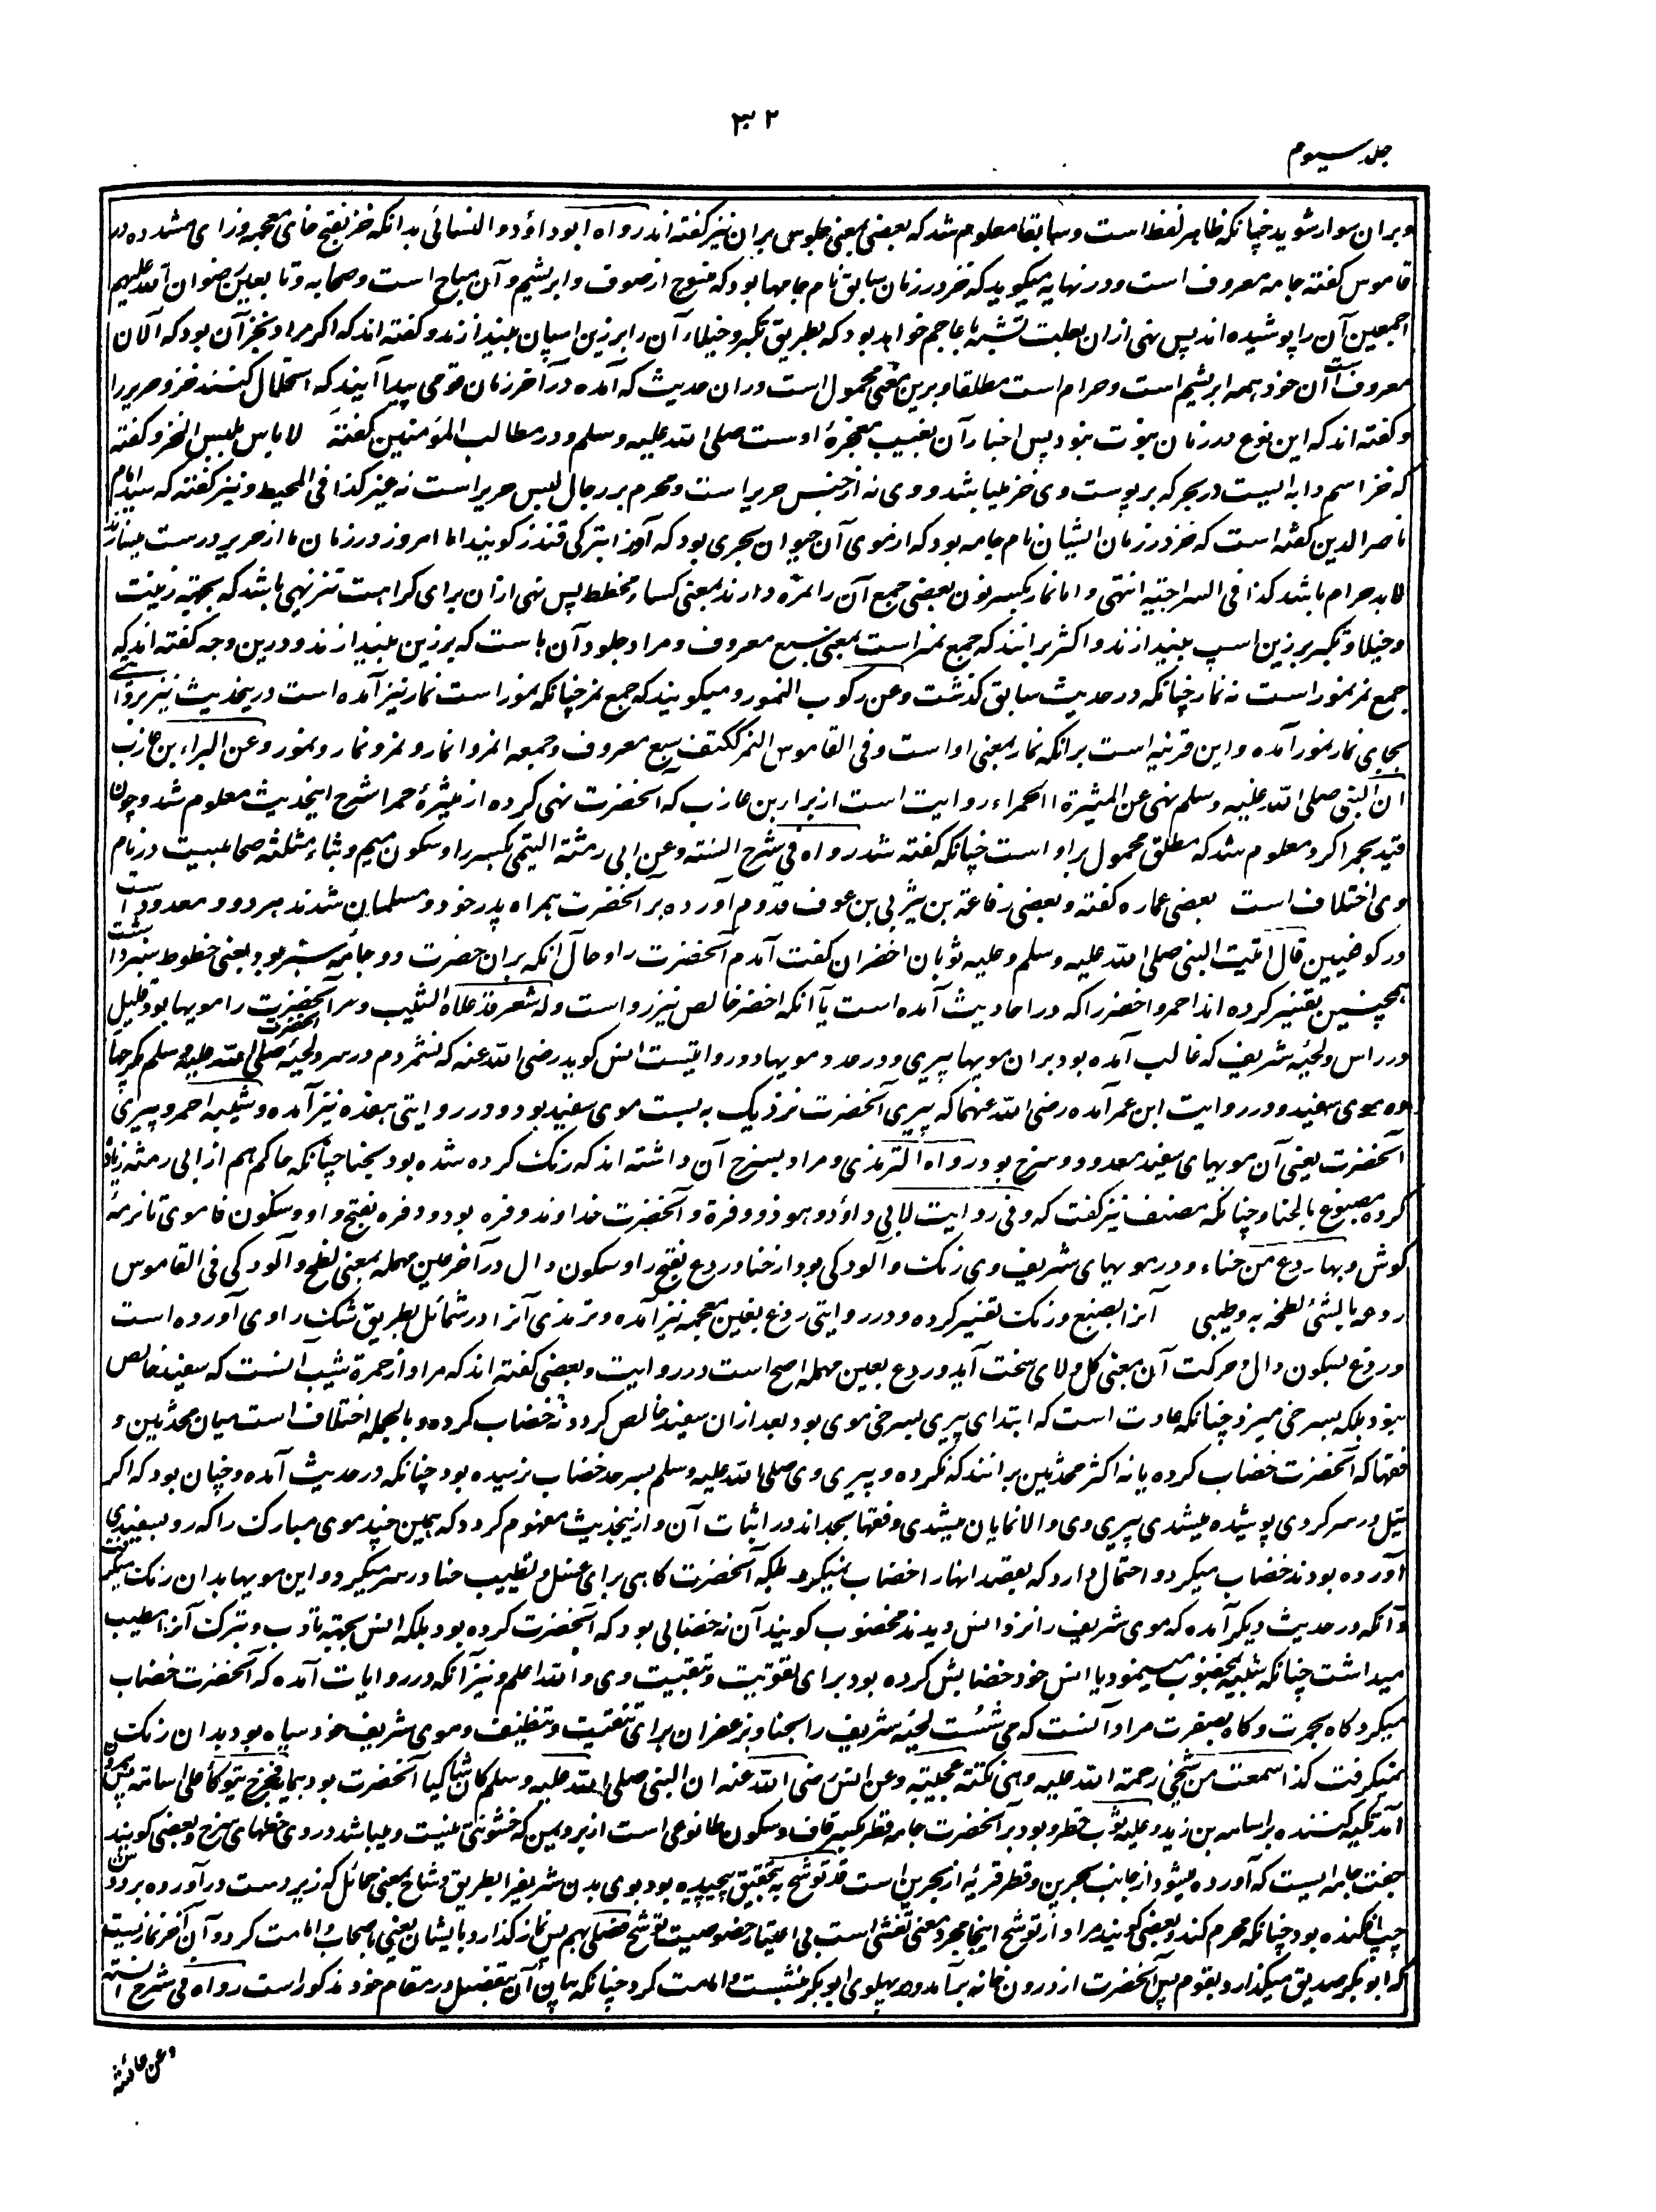 ۳۲
جلد سیوم
وبران سوار شوید چنانکه ظاهر لفظ است وسابقا معلوم شد که بعضی بمعنی جلوس بران نیز گفته اند رواه ابوداؤد والنسائی بدانکه خز بفتح خای معجمه وزای مشدده در
قاموس گفته جامه معروف است ودر نهایه میگوید که خز در زمان سابق نام جامها بود که منسوج از صوف وابریشم وآن مباح است وصحابه وتابعین رضوان الله علیهم
اجمعین آن را پوشیده اند پس نهی ازان بعلت تشبه باعاجم خواهد بود که بطریق تکبر وخیلاء آن را بر زین اسپان بیندازند وگفته اند که اگر مراد بخز آن بود که الان
معروف است آن خود همه ابریشم است وحرام است مطلقا وبرین معنی محمول است دران حدیث که آمده در آخر زمان قومی پیدا آیند که استحلال کنند خز وحریر را
وگفته اند که این نوع در زمان نبوت نبود پس اخبار آن بغیب معجزهٔ اوست صلی الله علیه وسلم ودر مطالب المؤمنین گفته لا باس بلبس الخز وگفته
که خز اسم دابه ایست در بحر که بر پوست وی خز میباشد ووی نه از جنس حریر است ومحرم بر رجال لبس حریر است نه غیر کذا فی المحیط ونیز گفته که سید امام
ناصر الدین گفته است که خز در زمان ایشان نام جامه بود که از موی آن حیوان بحری بود که آنرا بترکی قندز گویند اما امروز در زمان ما از حریر درست میسازند
لابد حرام باشد کذا فی السراجیه انتهی واما نمار بکسر نون بعضی جمع آن را نمره دارند بمعنی کساء مخطط پس نهی ازان برای کراهت تنزیهی باشد که بجهته زینت
وخیلا وتکبر بر زین اسپ بیندازند واکثر برانند که جمع نمر است بمعنی سبع معروف ومراد جلود آن هاست که بر زین بیندازند ودرین وجه گفته اند که
جمع نمر نمور است نه نمار چنانکه در حدیث سابق گذشت وعن رکوب النمور ومیگویند که جمع نمر چنانکه نمور است نمار نیز آمده است درینحدیث نیز بروایتی
بجای نمار نمور آمده واین قرینه است برانکه نمار بمعنی او است وفی القاموس النمر ککتف سبع معروف وجمعه انمر وانمار ونمر ونمار ونمور وعن البراء بن عازب
ان النبی صلی الله علیه وسلم نهی عن المیثرة الحمراء روایت است از براء بن عازب که آنحضرت نهی کرده از میثرهٔ حمرا شرح اینحدیث معلوم شد وچون
قید بحمرا کرد معلوم شد که مطلق محمول براو است چنانکه گفته شد رواه فی شرح السنته وعن ابی رمثة التیمی بکسر را وسکون میم وبثاء مثلثه صحابیست در نام
وی اختلاف است بعضی عماره گفته وبعضی رفاعة بن یثربی بن عوف قدوم آورده بر آنحضرت همراه پدر خود ومسلمان شدند هر دو ومعدود است
در کوفیین قال اتیت النبی صلی الله علیه وسلم وعلیه ثوبان اخضران گفت آمدم آنحضرت را وحال آنکه بران حضرت دو جامهٔ سبز بود یعنی خطوط سبز داشت
همچنین تفسیر کرده اند احمر واخضر را که در احادیث آمده است یا آنکه اخضر خالص نیز رواست وله شعر قد علاه الشیب ومر آنحضرت را مویها بود قلیل
در راس ولحیهٔ شریف که غالب آمده بود بران مویها پیری ودر عدد مویها دو روایتیست انس گوید رضی الله عنه که نشمردم در سر ولحیهٔ آنحضرت صلی الله علیه وسلم مگر چهار
ده موی سفید ودر روایت ابن عمر آمده رضی الله عنهما که پیری آنحضرت نزدیک به بست موی سفید بود ودر روایتی هفده نیز آمده وشیبه احمر وپیری
آنحضرت یعنی آن مویهای سفید معدود وسرخ بود رواه الترمذی ومراد بسرخ آن داشته اند که رنگ کرده شده بود بحنا چنانکه حاکم هم از ابی رمثه زیاده
کرده مصبوغ بالحنا وچنانکه مصنف نیز گفت که وفی روایت لابی داؤد وهو ذو وفرة وآنحضرت خداوند وفره بود ووفره بفتح واو وسکون فا موی تا نرمهٔ
گوش وبها ردع من حناء ودر مویهای شریف وی رنگ وآلودگی بود از حنا وردع بفتح را وسکون دال در آخر عین مهمله بمعنی لطخ وآلودگی فی القاموس
ردعه بالشئ لطخه به وطیبی آنرا بصبغ ورنگ تفسیر کرده ودر روایتی ردغ بغین معجمه نیز آمده وترمذی آنرا در شمائل بطریق شک راوی آورده است
وردغ بسکون دال وحرکت آن بمعنی گل ولای سخت آید وردع بعین مهمله اصح است در روایت وبعضی گفته اند که مراد از حمرة شیب آنست که سفید خالص
نبود بلکه بسرخی میزد چنانکه عادت است که ابتدای پیری بسرخی موی بود بعد ازان سفید خالص گردد نه خضاب کرده وبالجمله اختلاف است میان محدثین و
فقها که آنحضرت خضاب کرده یا نه اکثر محدثین برانند که نکرده وپیری وی صلی الله علیه وسلم بسرحد خضاب نرسیده بود چنانکه در حدیث آمده وچنان بود که اگر
تیل در سر کردی پوشیده میشدی پیری وی والا نمایان میشدی وفقها بجد اند در اثبات آن وازینحدیث مفهوم گردد که همین چند موی مبارک را که رو بسفیدی
آورده بودند خضاب میکرد واحتمال دارد که بقصد انها را خضاب نمیکرد بلکه آنحضرت گاهی برای غسل وتطییب حنا در سر میکرد واین مویها بدان رنگ میگرفت
وآنکه در حدیث دیگر آمده که موی شریف را نزد انس دیدند مخضوب گویند آن نه خضابی بود که آنحضرت کرده بود بلکه انس بجهته تادب وتبرک آنرا مطیب
میداشت چنانکه شبیه بمخضوب مینمود یا انس خود خضابش کرده بود برای تقویت وتثبیت وی والله اعلم ونیز آنکه در روایات آمده که آنحضرت خضاب
میکرد گاه بحمرت وگاه بصفرت مراد آنست که می شست لحیهٔ شریف را بحنا وبزعفران برای تنقیت وتنظیف وموی شریف خود سیاه بود بدان رنگ
نمیگرفت کذا سمعت من شیخی رحمته الله علیه وهی نکته عجیبته وعن انس رضی الله عنه ان النبی صلی الله علیه وسلم کان شاکیا آنحضرت بود بیمار فخرج یتوکأ علی اسامته پس بیرون
آمد تکیه کننده بر اسامه بن زید وعلیه ثوب قطر وبود بر آنحضرت جامه قطر بکسر قاف وسکون طا نوعی است از برد یمین که خشونتی نیست ومیباشد در وی خطهای سرخ وبعضی گویند
جفت جامه ایست که آورده میشود از جانب بحرین وقطر قریهٔ از بحرین است قد توشح به بتحقیق پیچیده بود بوی بدن شریف را بطریق وشاح بمعنی حمائل که زیر دست درآورده بر دوش
چپ افکنده بود چنانکه محرم کند وبعضی گویند مراد از توشح اینجا مجرد معنی تغشی است بی اعتبار خصوصیت توشح فصلی بهم پس نماز گذارد بایشان یعنی باصحاب وامامت کرد وآن آخر نمازیست
که ابوبکر صدیق میگذارد بقوم پس آنحضرت از درون خانه برآمد ودر پهلوی ابوبکر نشست وامامت کرد چنانکه بیان آن بتفصیل در مقام خود مذکور است رواه فی شرح السنته
وعن عائشه